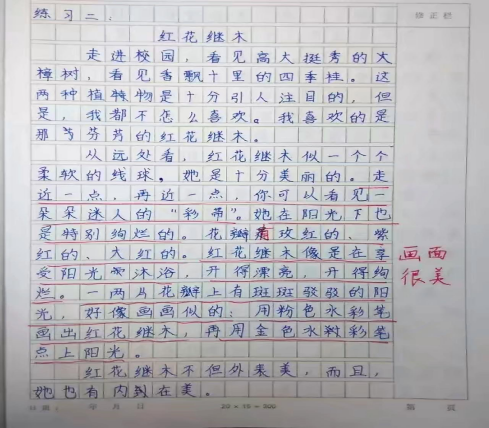 练习二.
修正栏
红花继木
走进校园，看见高大挺秀的大
樟树，看见香飘十里的四季桂。这
两种植物是十分引人注目的，但
是，我都不怎么喜欢。我喜欢的是
那芬芳的红花继木。
从远处看，红花继木似一个个
柔软的线球。她是十分美丽的。走
近一点，再近一点，你可以看见一
朵朵迷人的“彩带”。她在阳光下也
是特别绚烂的。花瓣有玫红的、紫
红的、大红的。红花继木像是在享
受阳光沐浴，开得漂亮，开得绚
烂。一两片花瓣上有斑斑驳驳的阳
光，好像画画似的：用粉色水彩笔
画出红花继木，再用金色水彩笔
点上阳光。
画面
很美
红花继木不但外表美，而且，
她也有内在美。
年 月 日
20 × 15 = 300
第 页